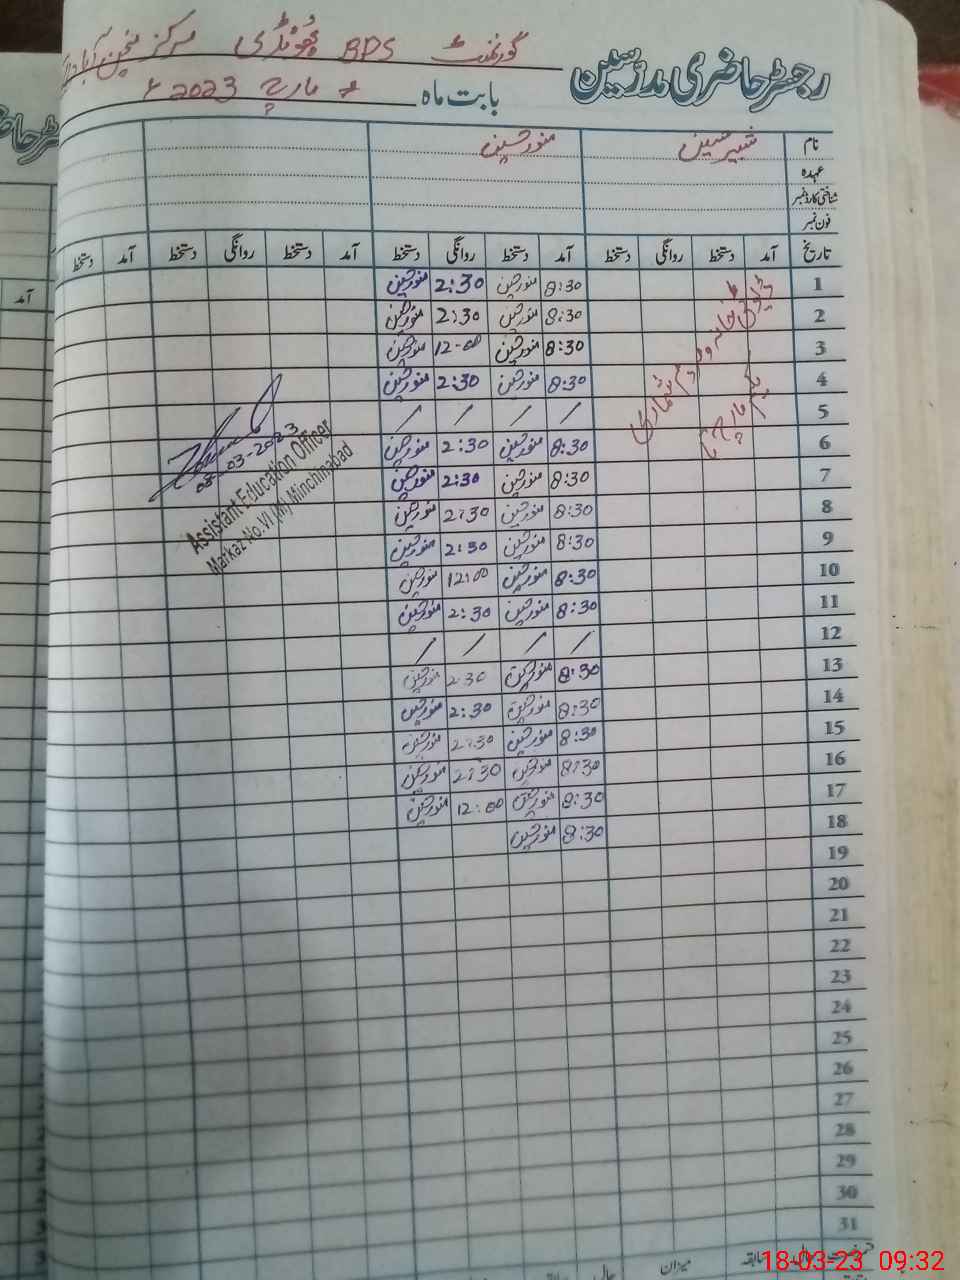 گورنمنٹ BPS مرکز منچن آباد
رجسٹر حاضری مدرسین
بابت ماہ مارچ 2023ء
نام شبیر حسین منور حسین
عہدہ
شناختی کارڈ نمبر
فون نمبر
تاریخ آمد دستخط روانگی دستخط آمد دستخط روانگی دستخط آمد دستخط روانگی دستخط آمد دستخط
1 8:30 منور حسین 2:30 منور حسین
2 8:30 منور حسین 2:30 منور حسین
3 8:30 منور حسین 12-00 منور حسین
4 8:30 منور حسین 2:30 منور حسین
5 / / / /
6 8:30 منور حسین 2:30 منور حسین
7 8:30 منور حسین 2:30 منور حسین
8 8:30 منور حسین 2:30 منور حسین
9 8:30 منور حسین 2:30 منور حسین
10 8:30 منور حسین 12:00 منور حسین
11 8:30 منور حسین 2:30 منور حسین
12 / / / /
13 8:30 منور حسین 2:30 منور حسین
14 8:30 منور حسین 2:30 منور حسین
15 8:30 منور حسین 2:30 منور حسین
16 8:30 منور حسین 2:30 منور حسین
17 8:30 منور حسین 12:00 منور حسین
18 8:30 منور حسین
19
20
21
22
23
24
25
26
27
28
29
30
31
ڈیوٹی خانہ و مردم شماری
یکم مارچ تا
03-03-2023
Assistant Education Officer
Markaz No.VI (M) Minchinabad
رخصت حالی سابقہ میزان حالی
آمد
18-03-23 09:32